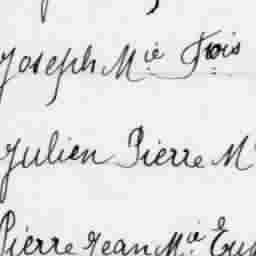 Joseph M.ie Fois
Julien Pierre M
Pierre Jean M.ie Eug